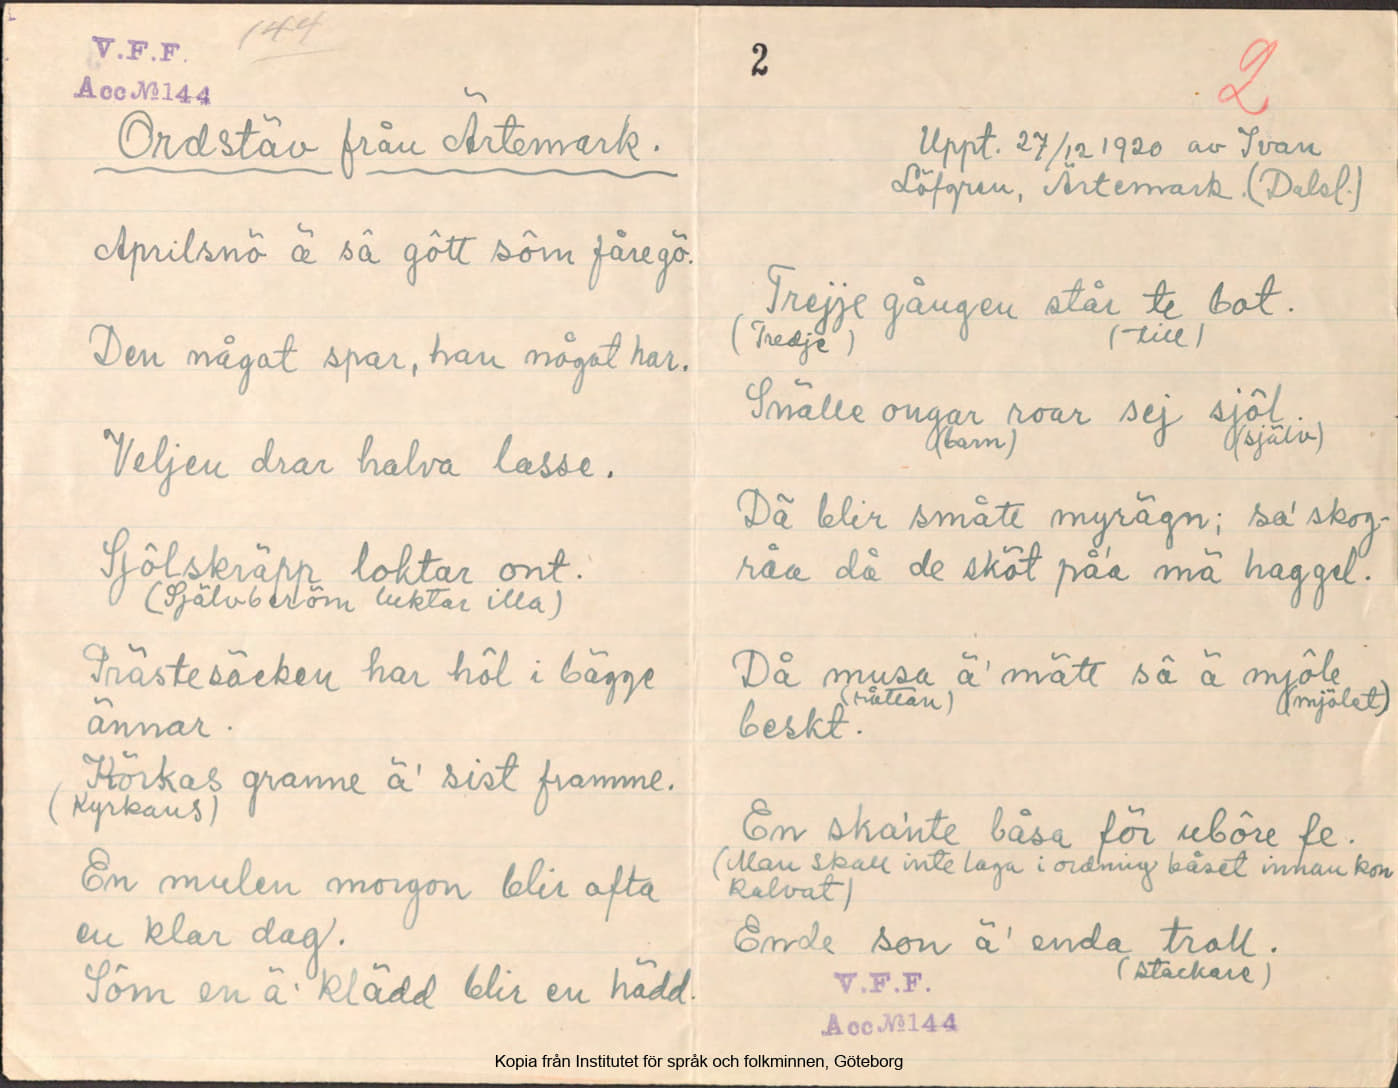 V.F.F.
Acc №144
144
Ordstäv från Ärtemark.
Aprilsnö ä så gôtt sôm fåregö.
Den något spar, han något har.
Veljen drar halva lasse.
Sjôlskräpp loktar ont.
(Självberöm luktar illa)
Prästesäcken har hôl i bägge
ännar.
Körkas granne ä' sist framme.
(Kyrkans)
En mulen morgon blir ofta
en klar dag.
Sôm en ä' klädd blir en hädd.
2
2
Uppt. 27/12 1920 av Ivan
Löfgren, Ärtemark. (Dalsl.)
Trejje gången står te bot.
(Tredje) (till)
Snälle ongar roar sej sjôl.
(barn) (själv)
Dä blir småte myrägn; sa' skog-
råa då de sköt på'a mä haggel.
Då musa ä' mätt så ä mjôle
(råttan) (mjölet)
beskt.
En ska'nte båsa för ubôre fe.
(Man skall inte laga i ordning båset innan kon
kalvat)
Ende son ä' enda troll.
(stackare)
V.F.F.
Acc №144
Kopia från Institutet för språk och folkminnen, Göteborg